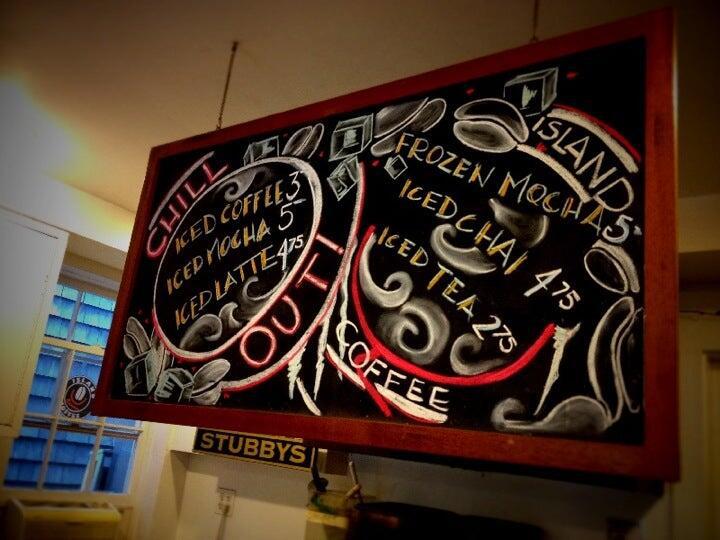 CHILL
ICED COFFEE 3
ICED MOCHA 5
ICED LATTE 4 75
OUT!
ISLAND
FROZEN MOCHA 5
ICED CHAI 4 75
ICED TEA 2 75
COFFEE
STUBBYS
ISLAND
COFFEE